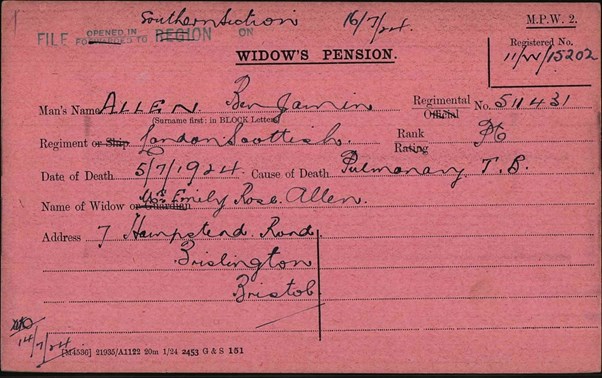 Southern Section 16/7/24. M.P.W. 2.
FILE OPENED IN FORWARDED TO REGION ON
Registered No.
11/W/15202
WIDOW'S PENSION.
Man's Name ALLEN Benjamin Regimental Official No. 511431
(Surname first: in BLOCK Letters)
Regiment or Ship London Scottish. Rank Rating Pte
Date of Death 5/7/1924. Cause of Death Pulmonary T.B.
Name of Widow or Guardian Mrs Emily Rose Allen.
Address 7 Hampstead Road.
Brislington
Bristol.
14/7/24
[M4536] 21935/A1122 20m 1/24 2453 G & S 151